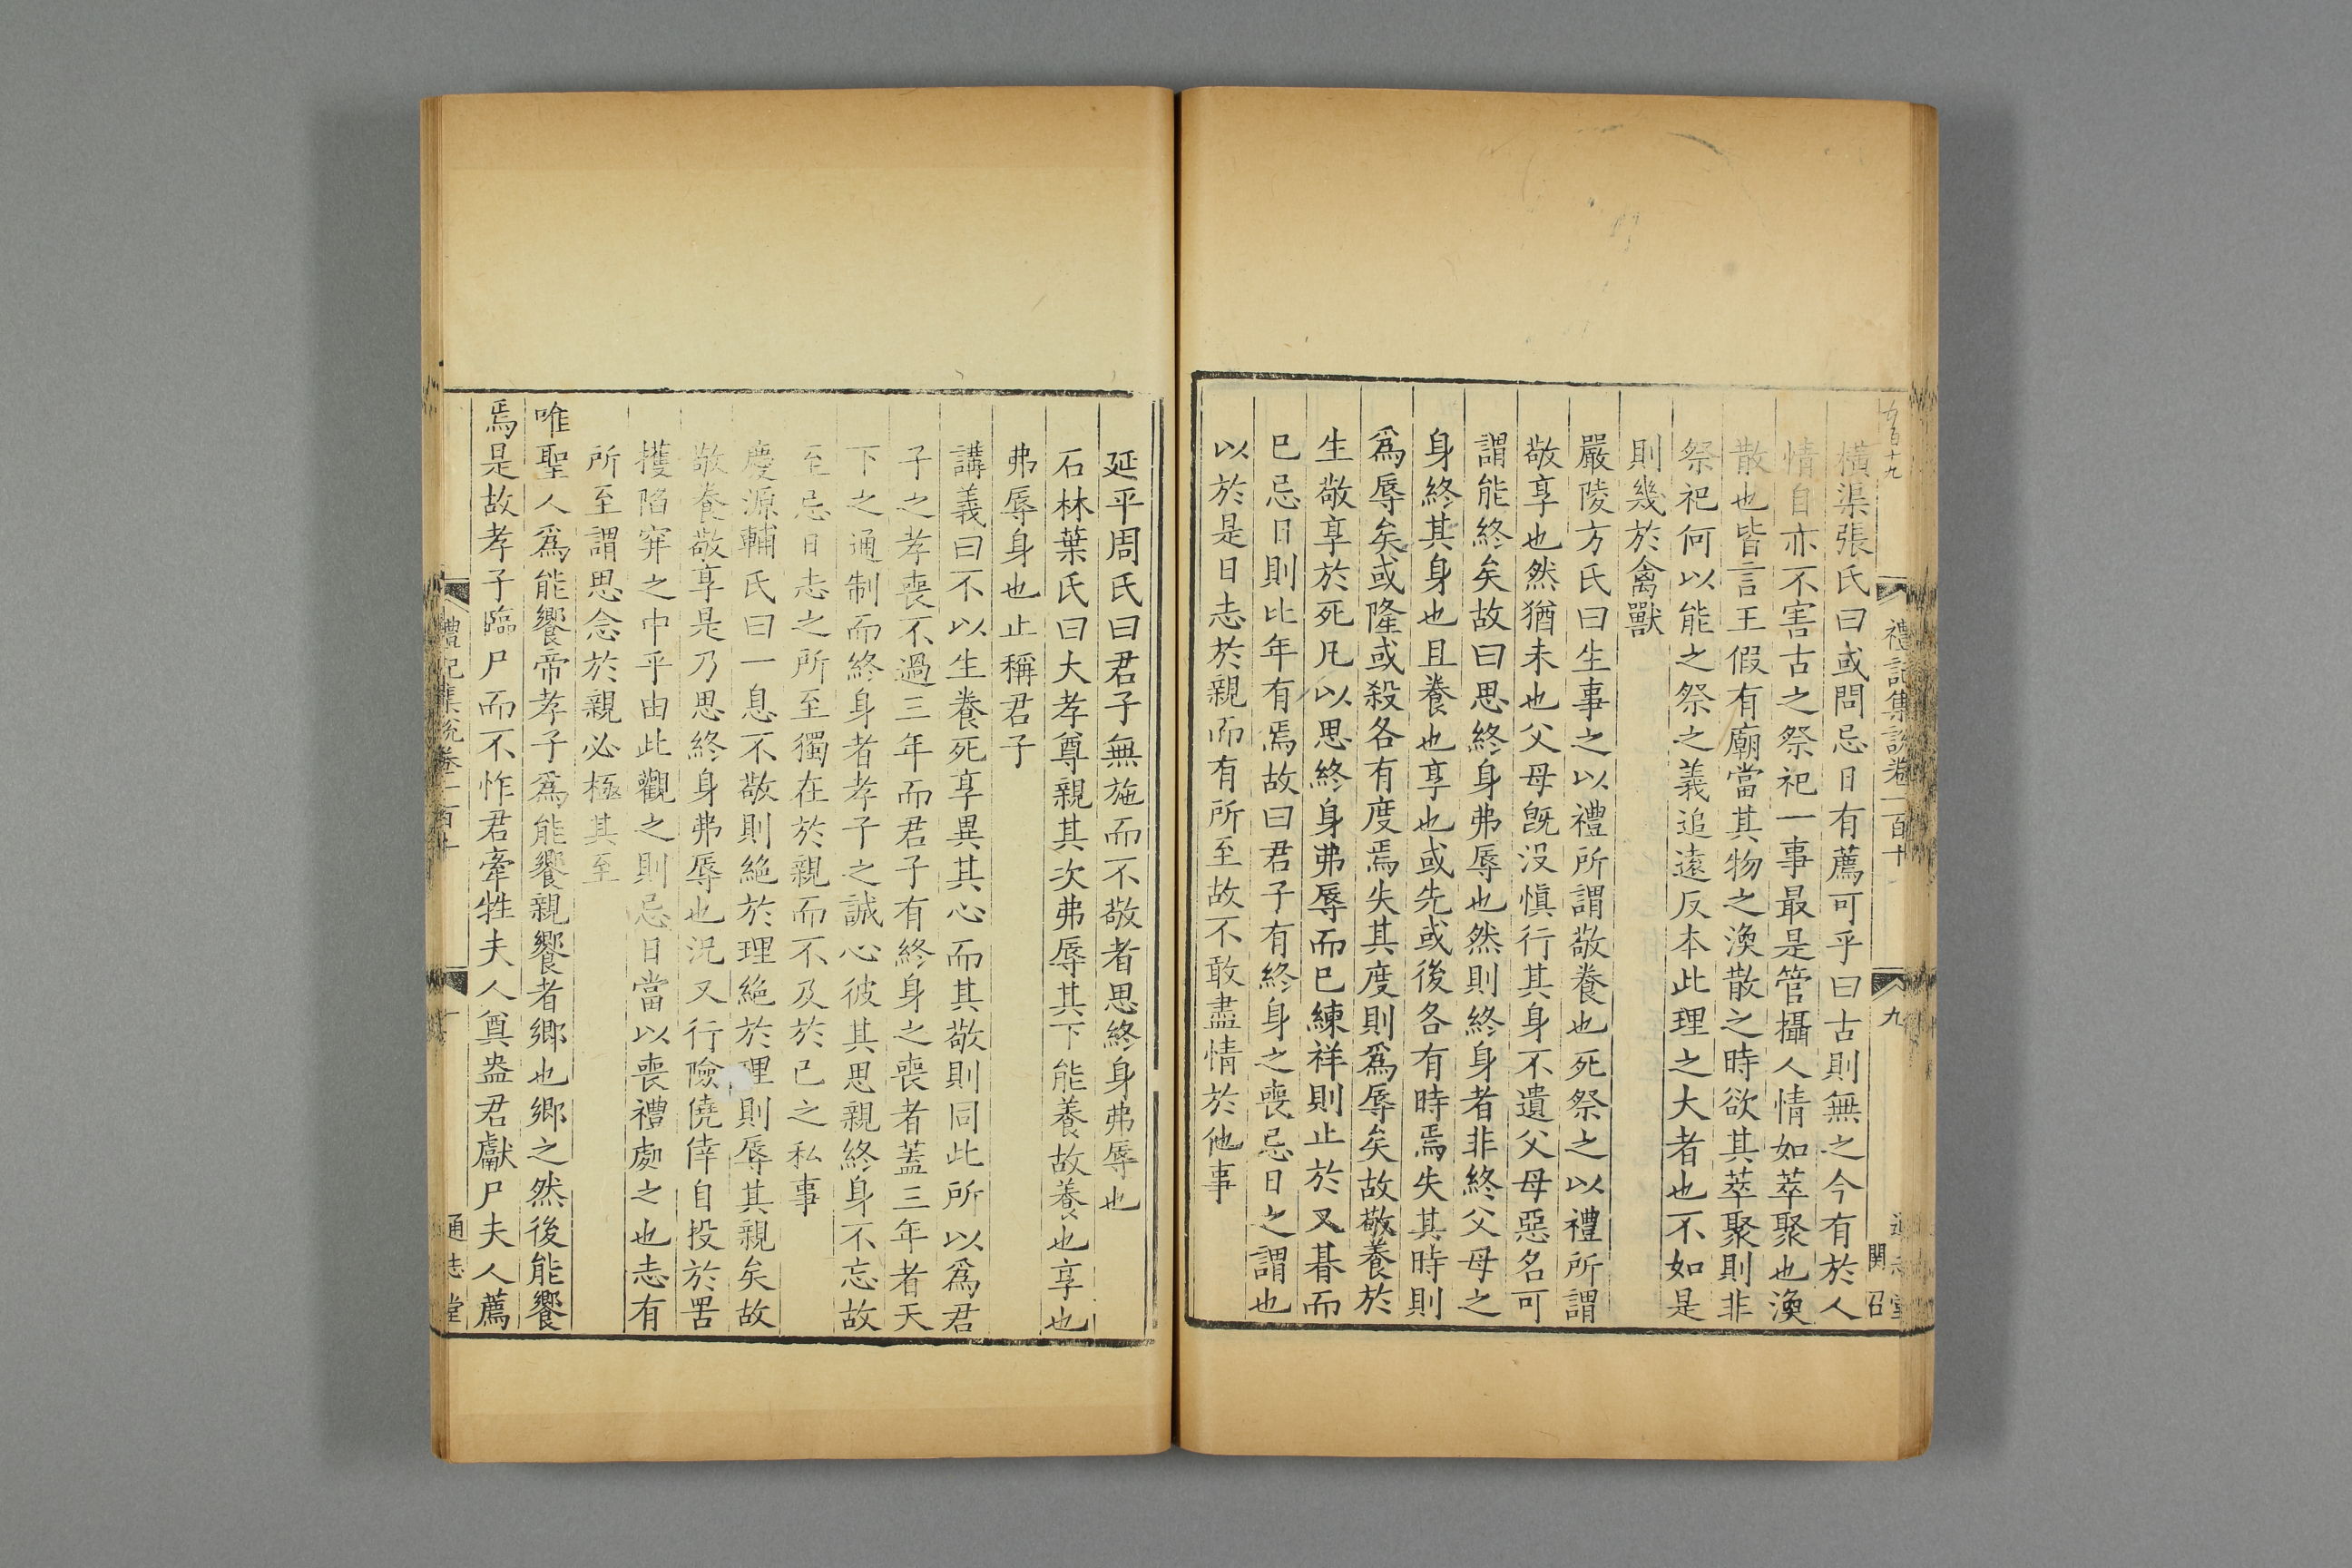 五百十九
禮記集說卷一百十
九
通志堂
関召
橫渠張氏曰或問忌日有薦可乎曰古則無之今有於人
情自亦不害古之祭祀一事最是管攝人情如萃聚也渙
散也皆言王假有廟當其物之渙散之時欲其萃聚則非
祭祀何以能之祭之義追遠反本此理之大者也不如是
則幾於禽獸
嚴陵方氏曰生事之以禮所謂敬養也死祭之以禮所謂
敬享也然猶未也父母旣沒愼行其身不遺父母惡名可
謂能終矣故曰思終身弗辱也然則終身者非終父母之
身終其身也且養也享也或先或後各有時焉失其時則
爲辱矣或隆或殺各有度焉失其度則爲辱矣故敬養於
生敬享於死凡以思終身弗辱而已練祥則止於又朞而
已忌日則比年有焉故曰君子有終身之喪忌日之謂也
以於是日志於親而有所至故不敢盡情於他事
延平周氏曰君子無施而不敬者思終身弗辱也
石林葉氏曰大孝尊親其次弗辱其下能養故養也享也
弗辱身也止稱君子
講義曰不以生養死享異其心而其敬則同此所以爲君
子之孝喪不過三年而君子有終身之喪者蓋三年者天
下之通制而終身者孝子之誠心彼其思親終身不忘故
至忌日志之所至獨在於親而不及於已之私事
慶源輔氏曰一息不敬則絕於理絕於理則辱其親矣故
敬養敬享是乃思終身弗辱也況又行險僥倖自投於罟
擭陷穽之中乎由此觀之則忌日當以喪禮處之也志有
所至謂思念於親必極其至
唯聖人爲能饗帝孝子爲能饗親饗者鄉也鄉之然後能饗
焉是故孝子臨尸而不怍君牽牲夫人奠盎君獻尸夫人薦
禮記集說卷一百十
通志堂